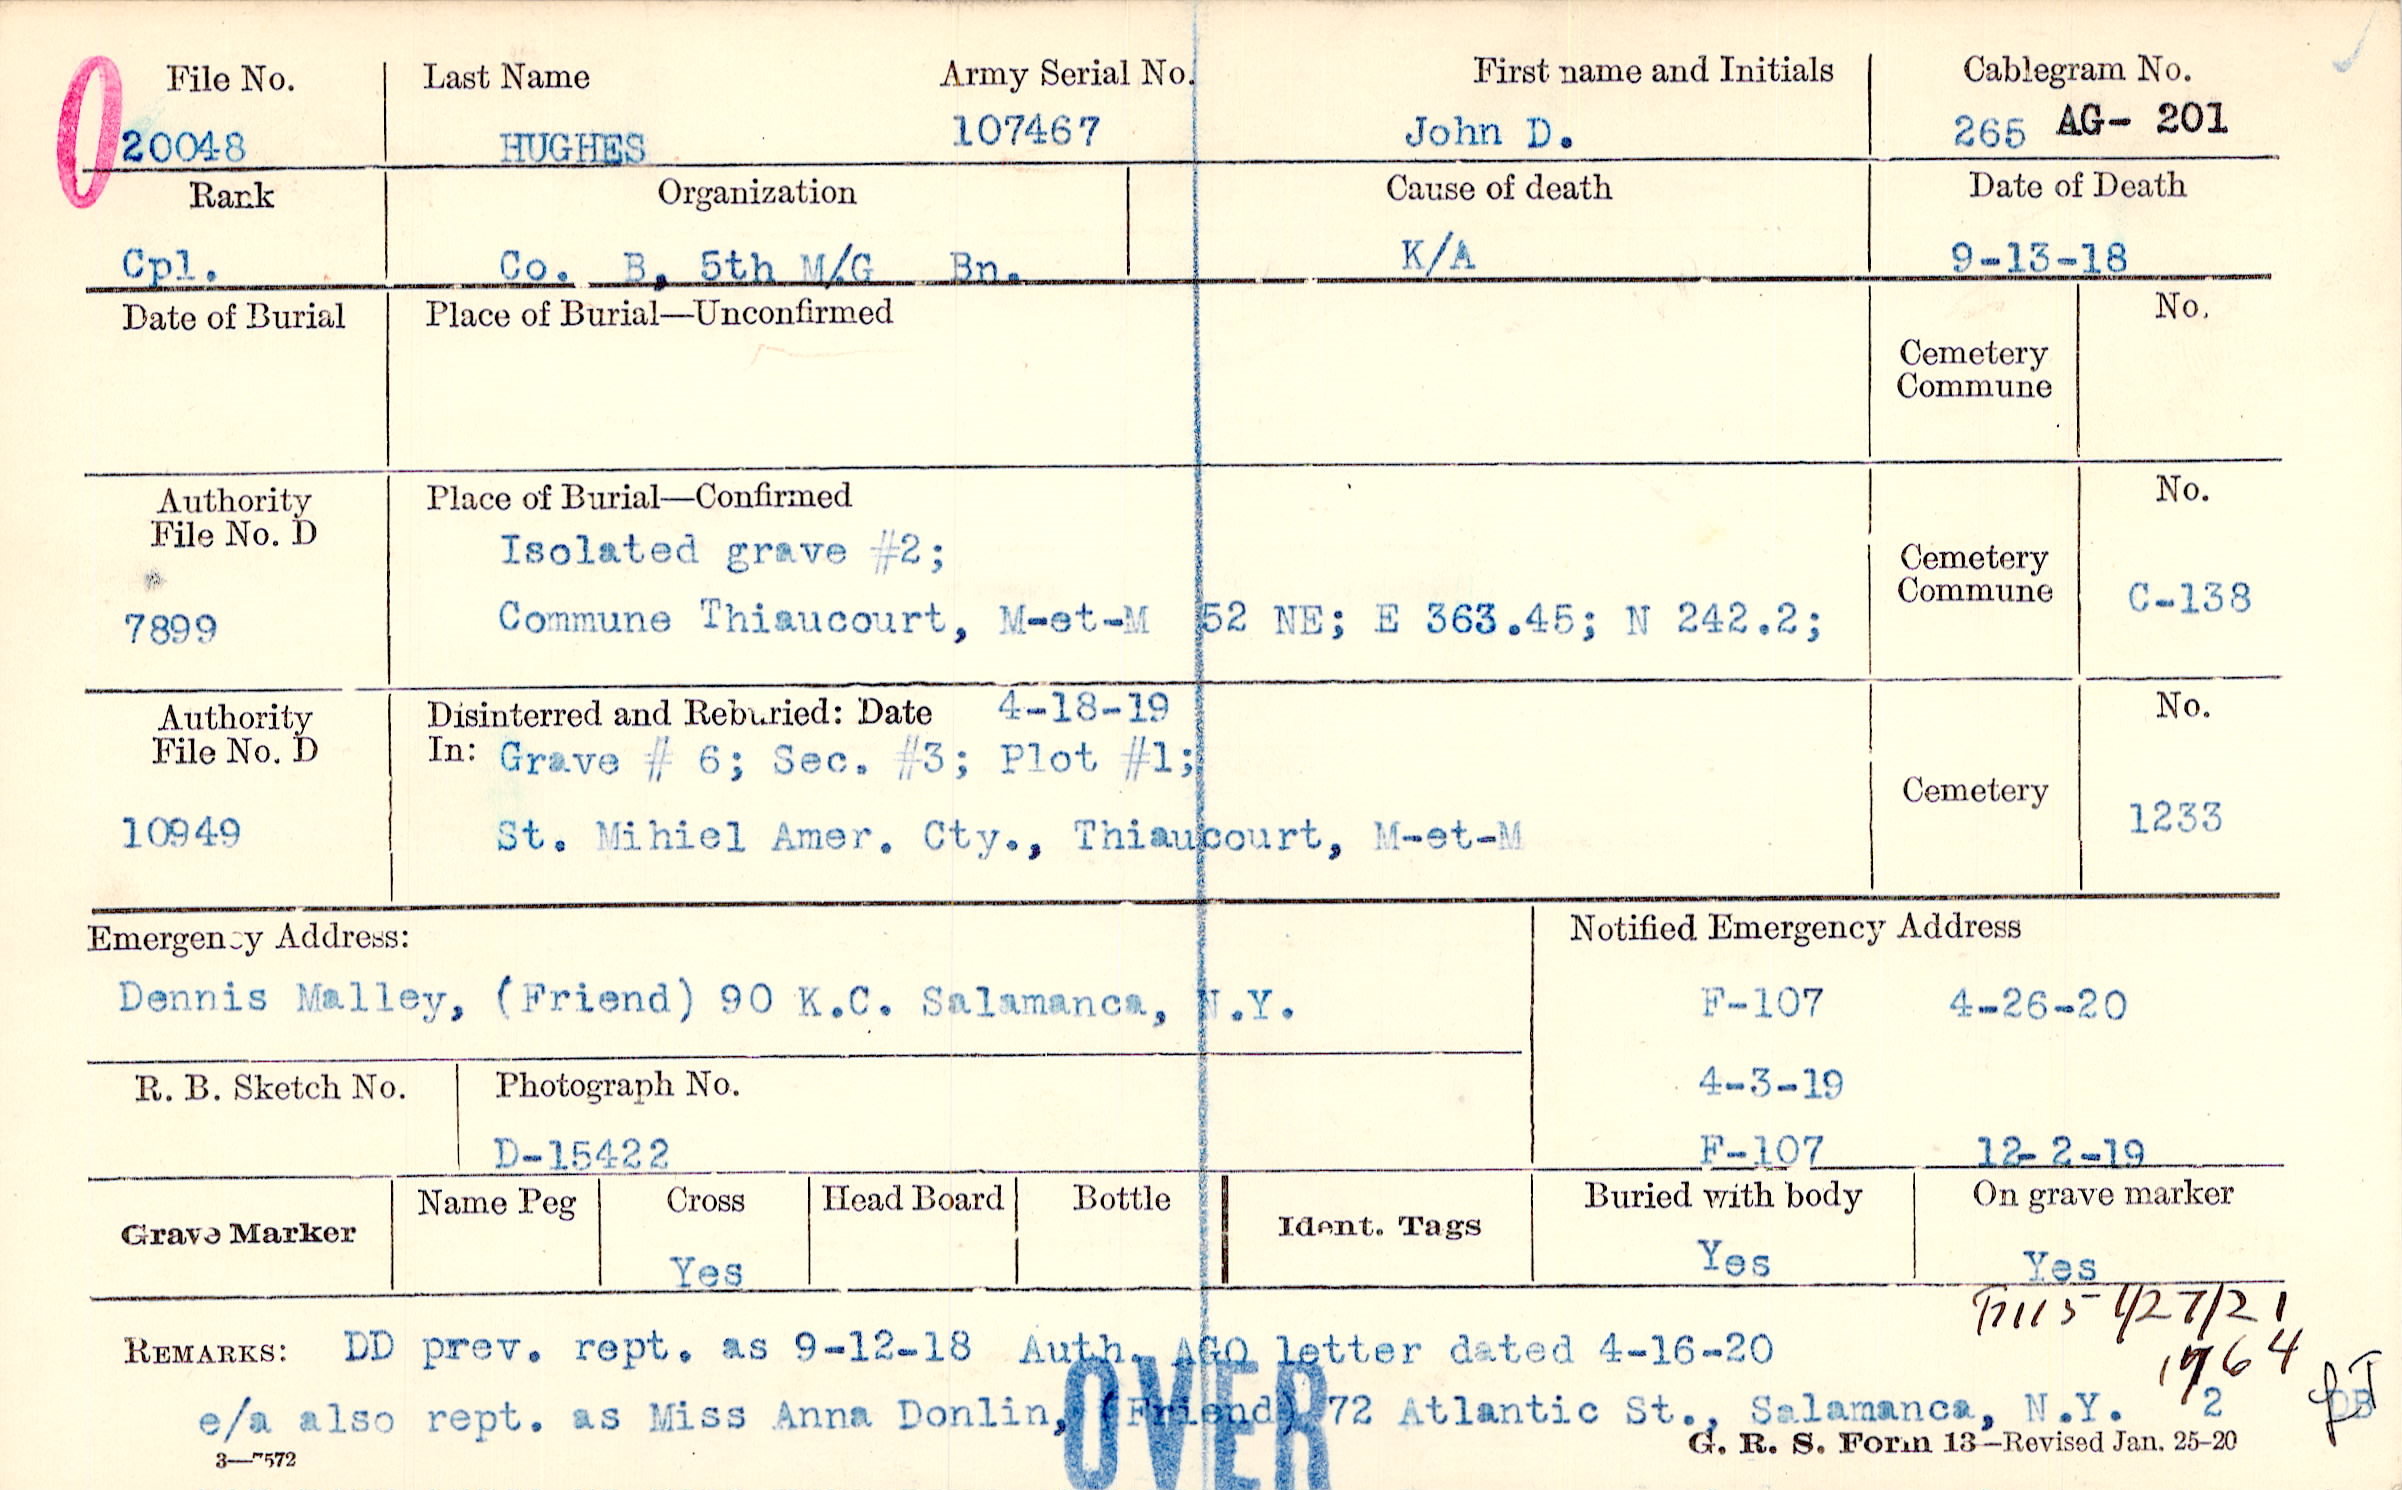 File No. Last Name Army Serial No. First name and Initials Cablegram No.
20048 HUGHES 107467 John D. 265 AG- 201
Rank Organization Cause of death Date of Death
Cpl. Co. B, 5th M/G Bn. K/A 9-13-18
Date of Burial Place of Burial—Unconfirmed No.
Cemetery
Commune
Authority Place of Burial—Confirmed No.
File No. D
Isolated grave #2;
Cemetery
Commune
7899 Commune Thiaucourt, M-et-M 52 NE; E 363.45; N 242.2; C-138
Authority Disinterred and Reburied: Date 4-18-19 No.
File No. D In: Grave # 6; Sec. #3; Plot #1;
Cemetery
10949 St. Mihiel Amer. Cty., Thiaucourt, M-et-M 1233
Emergency Address: Notified Emergency Address
Dennis Malley, (Friend) 90 K.C. Salamanca, N.Y. F-107 4-26-20
R. B. Sketch No. Photograph No. 4-3-19
D-15422 F-107 12-2-19
Grave Marker Name Peg Cross Head Board Bottle Ident. Tags Buried with body On grave marker
Yes Yes Yes
1/27/21
REMARKS: DD prev. rept. as 9-12-18 Auth. AGO letter dated 4-16-20
1764
e/a also rept. as Miss Anna Donlin, (Friend) 72 Atlantic St., Salamanca, N.Y. 2
OVER
3—7572 G. R. S. Form 13—Revised Jan. 25-20